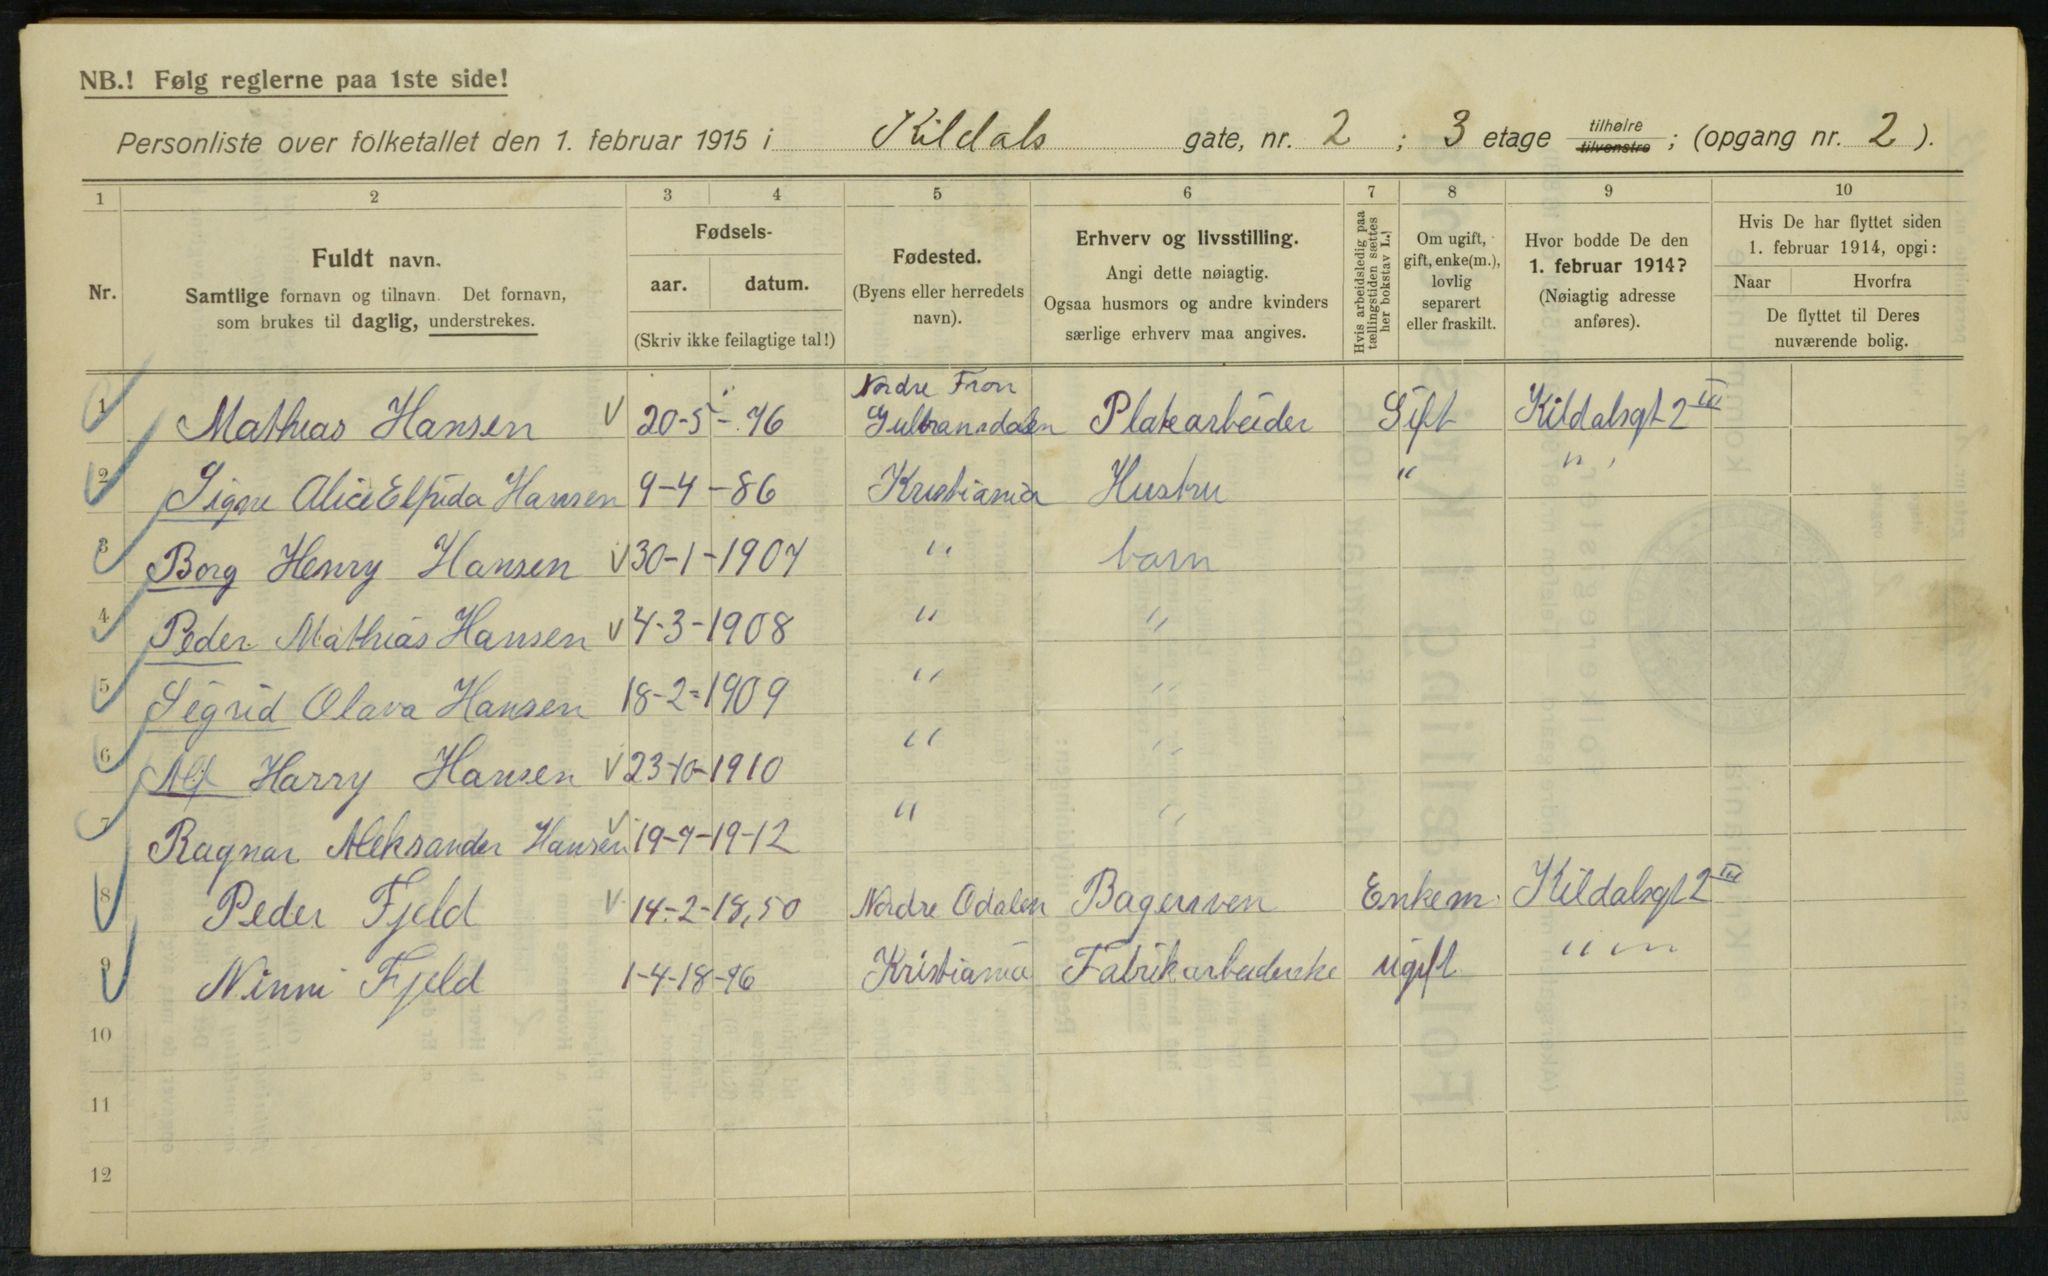 NB.! Følg reglerne paa 1ste side!
Personliste over folketallet den 1. februar 1915 i Kildals gate, nr. 2 ; 3 etage tilhølre tilvenstre ; (opgang nr. 2 ).
1 2 3 4 5 6 7 8 9 10
Nr.
Fuldt navn.
Samtlige fornavn og tilnavn. Det fornavn,
som brukes til daglig, understrekes.
Fødsels-
aar. datum.
(Skriv ikke feilagtige tal!)
Fødested.
(Byens eller herredets
navn).
Erhverv og livsstilling.
Angi dette nøiagtig.
Ogsaa husmors og andre kvinders
særlige erhverv maa angives.
Hvis arbeidsledig paa
tællingstiden sættes
her bokstav L.
Om ugift,
gift, enke(m.),
lovlig
separert
eller fraskilt.
Hvor bodde De den
1. februar 1914?
(Nøiagtig adresse
anføres).
Hvis De har flyttet siden
1. februar 1914, opgi:
Naar Hvorfra
De flyttet til Deres
nuværende bolig.
Nordre Fron
1 Mathias Hansen V 20-5-76 Gulbransdalen Platearbeider Gift Kildalsgt 2 III
2 Signe Alice Elfrida Hansen 9-4-86 Kristiania Hustru " " "
3 Borg Henry Hansen V 30-1-1907 " barn
4 Peder Mathias Hansen V 4-3-1908 " "
5 Sigrid Olava Hansen 18-2-1909 " "
6 Alf Harry Hansen V 23-10-1910 " "
7 Ragnar Aleksander Hansen V 19-7-19-12 " "
8 Peder Fjeld V 14-2-18,50 Nordre Odalen Bagersven Enkem. Kildalsgt 2 III
9 Ninni Fjeld 1-4-18-96 Kristiania Fabrikarbeiderske ugift " " "
10
11
12